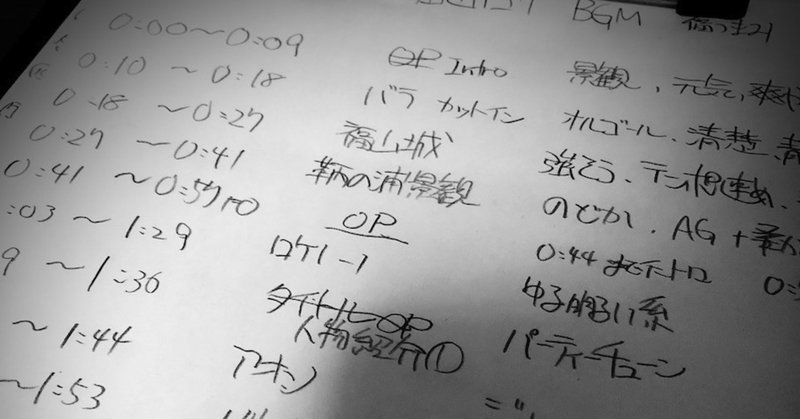 BGM
0:00〜0:09 OP Intro 景観、元気、爽
0:10 〜0:18 バラ カットイン オルゴール、清楚、
0:18 〜0:27 福山城 強そう、テンポ速め、
0:27 〜0:41 鞆の浦景観 のどか、AG+柔
0:41 〜0:59 OP 0:44 までイントロ
:03 〜1:29 ロケ1-1 ゆる明るい系
9 〜1:36 タイトルOP
人物紹介① パーティーチューン
〜1:44 アキン
〜1:53